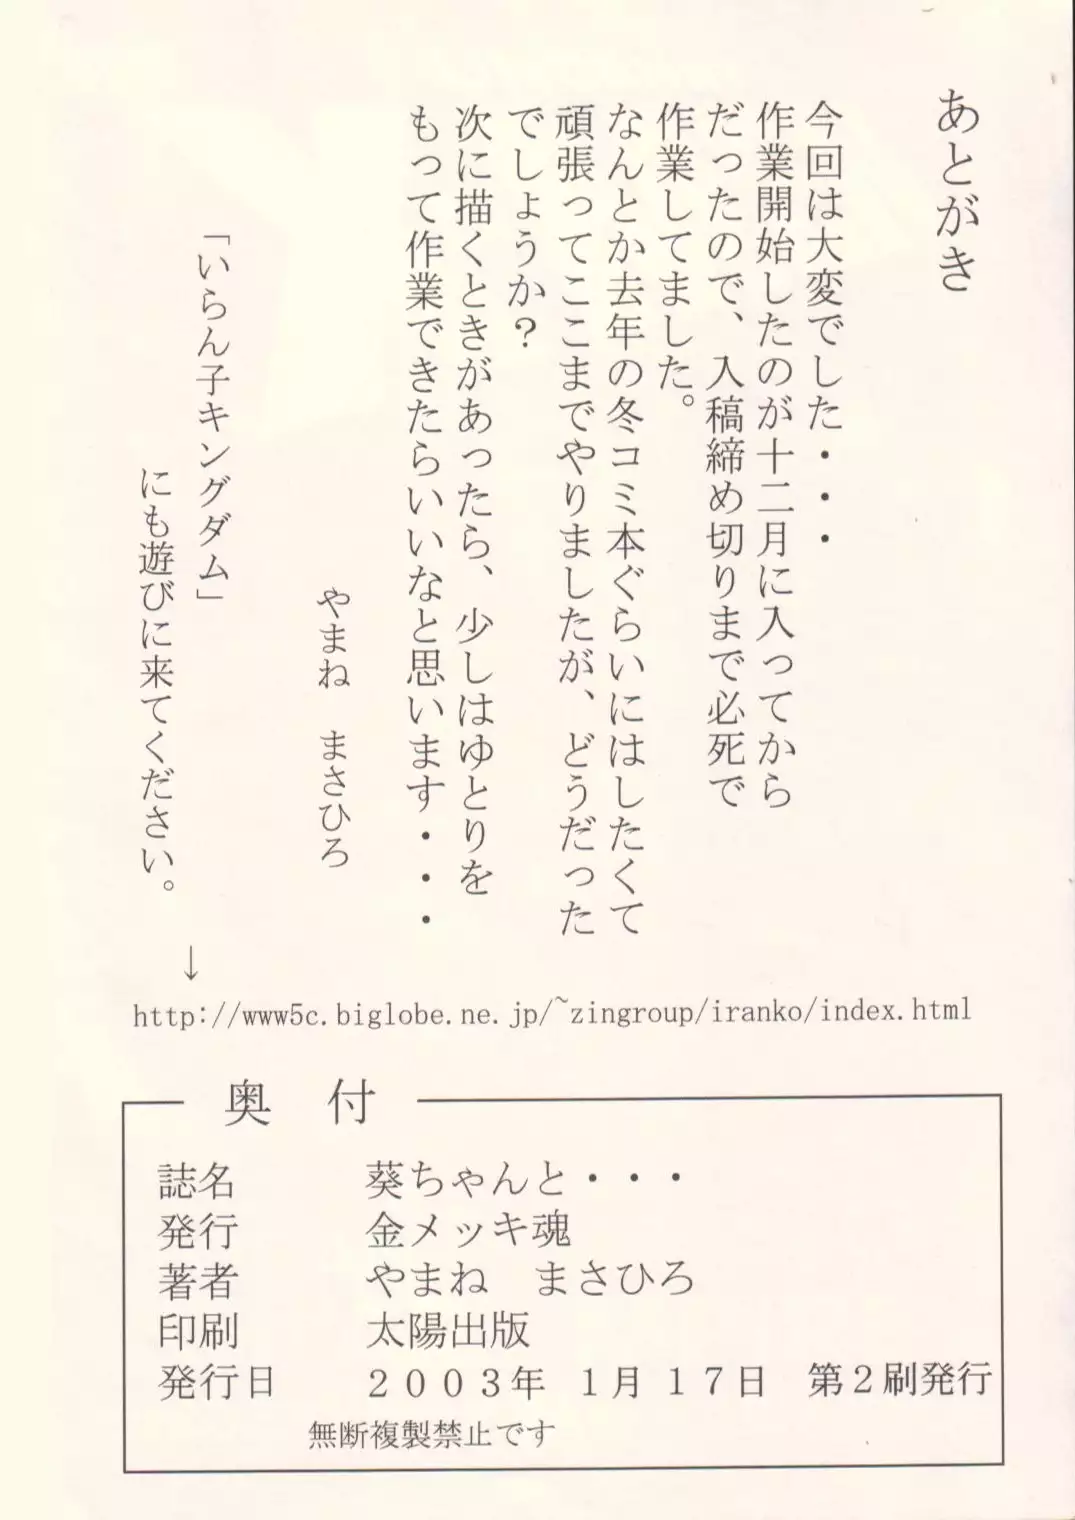 あとがき
今回は大変でした・・・
作業開始したのが十二月に入ってから
だったので、入稿締め切りまで必死で
作業してました。
なんとか去年の冬コミ本ぐらいにはしたくて
頑張ってここまでやりましたが、どうだった
でしょうか？
次に描くときがあったら、少しはゆとりを
もって作業できたらいいなと思います・・・
やまね　まさひろ
「いらん子キングダム」
にも遊びに来てください。
→
http://www5c.biglobe.ne.jp/~zingroup/iranko/index.html
奥　付
誌名　葵ちゃんと・・・
発行　金メッキ魂
著者　やまね　まさひろ
印刷　太陽出版
発行日　２００３年　１月　１７日　第２刷発行
無断複製禁止です